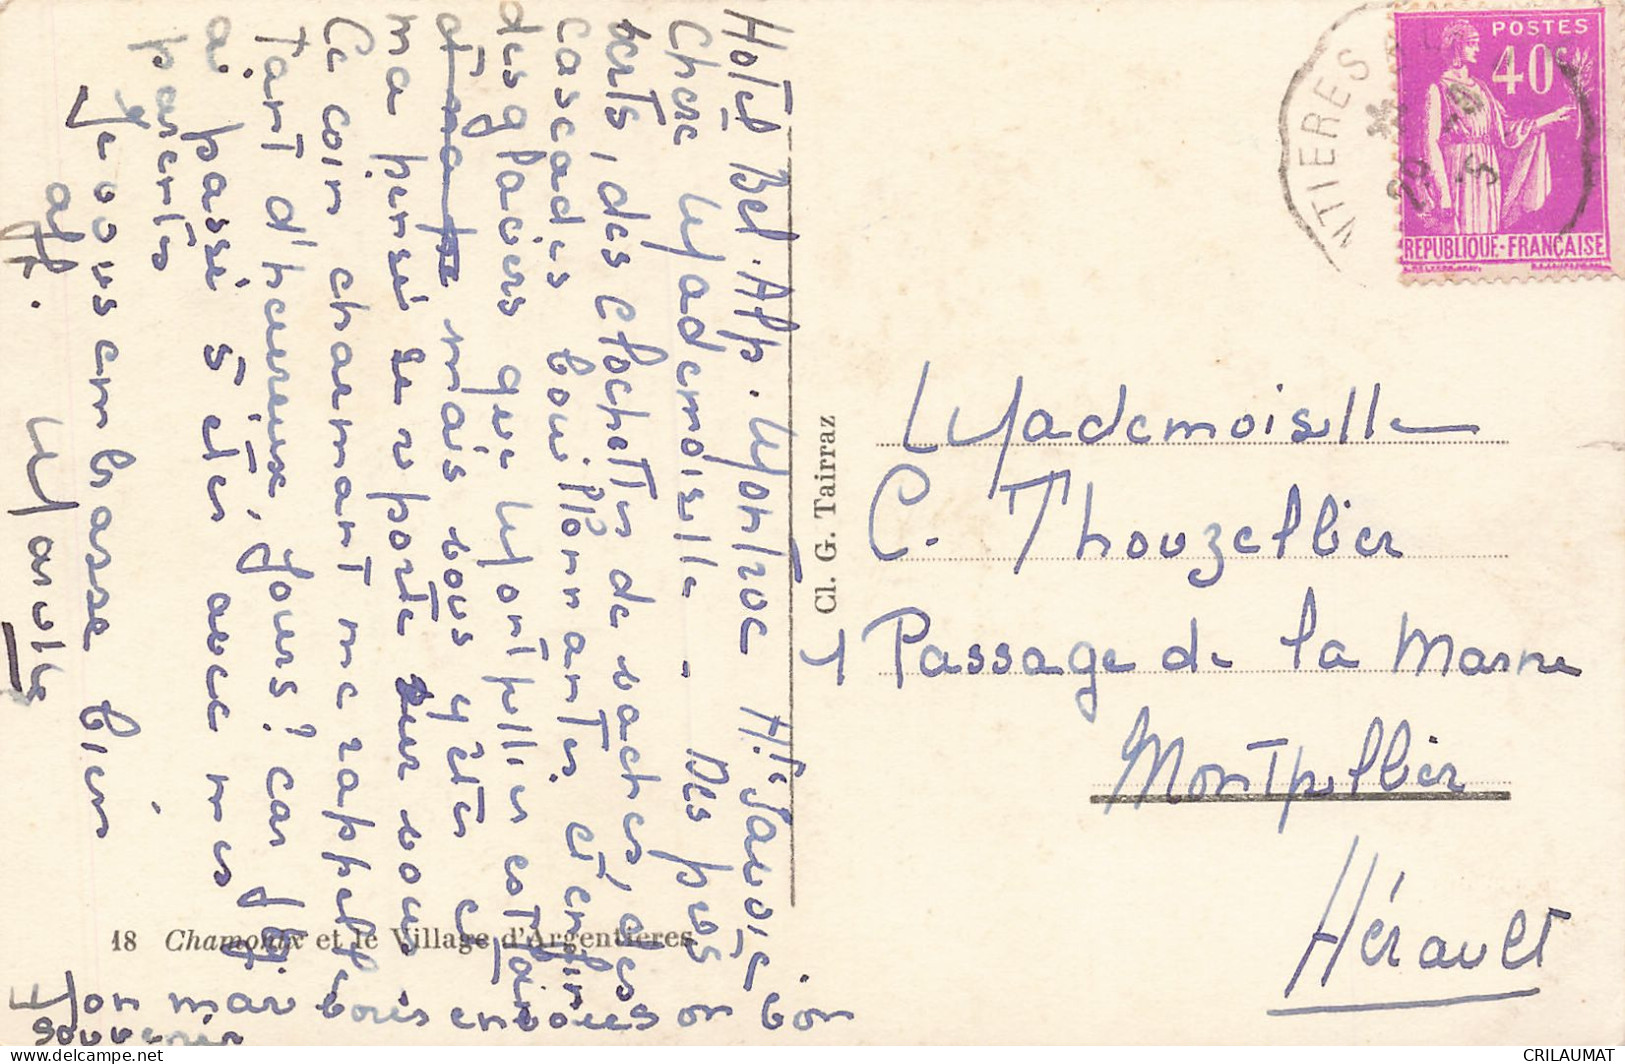 Hôtel Bel-Alp. Montroc Hte Savoie
Chère Mademoiselle - Des prés
verts, des clochettes de vaches, des
cascades bouillonnantes, et enfin
des glaciers que Montpellier est loin
mais vous y êtes et
ma pensée se reporte sur vous
Ce coin charmant me rappelle
tant d'heureux jours! car j'y
ai passé 5 étés avec mes
parents
Je vous embrasse bien
aff.
Ton mari vous envoie son bon
souvenir
Cl. G. Tairraz
18 Chamonix et le Village d'Argentières
POSTES
40c
REPUBLIQUE-FRANÇAISE
NTIERES
Mademoiselle
C. Thouzellier
1 Passage de la Marne
Montpellier
Hérault
CRILAUMAT